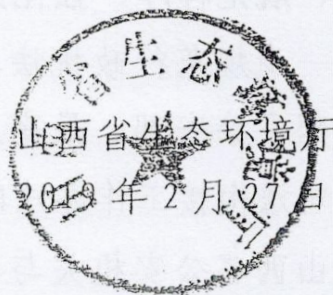 山西省生态环境厅
2019年2月27日